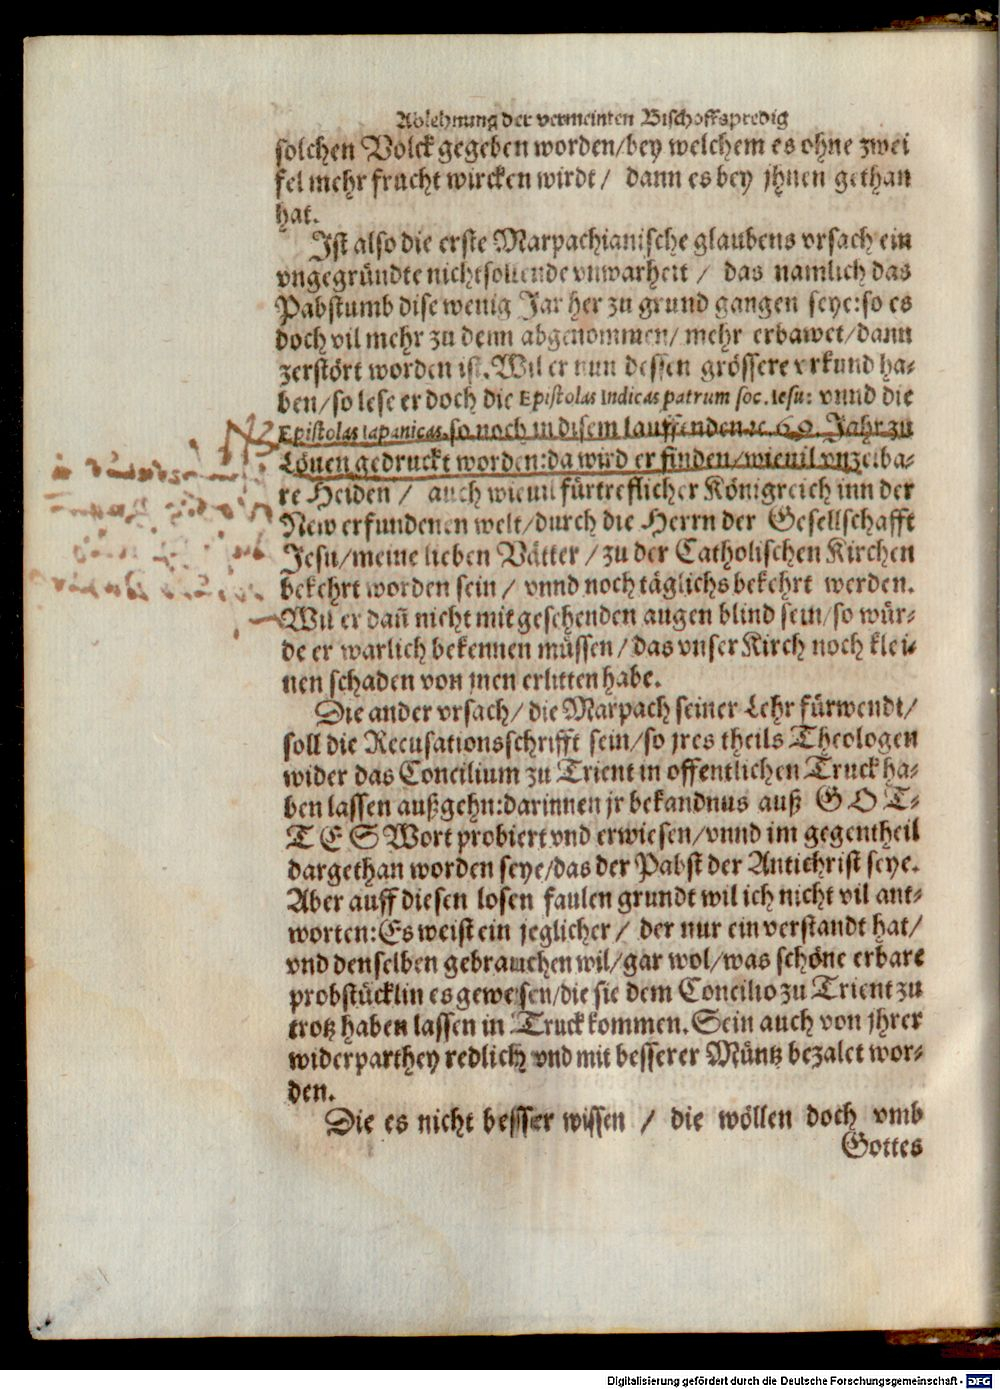 Ablehnung der vermeinten Bischoffspredig
solchen Volck gegeben worden/bey welchem es ohne zwei
fel mehr frucht wircken wirdt / dann es bey jhnen gethan
hat.
Ist also die erste Marpachianische glaubens vrsach ein
vngegründte nichtsollende vnwarheit / das namlich das
Pabstumb dise wenig Jar her zu grund gangen seye:so es
doch vil mehr zu denn abgenommen/mehr erbawet/dann
zerstört worden ist. Wil er nun dessen grössere vrkund ha-
ben/so lese er doch die Epistolas Indicas patrum soc. Iesu: vnnd die
Epistolas Iapanicas, so noch in disem lauffenden ꝛc. 69. Jahr zu
Löuen gedruckt worden:da wird er finden/wieuil vnzelba-
re Heiden / auch wieuil fürtreflicher Königreich inn der
New erfundenen welt/durch die Herrn der Gesellschafft
Jesu/meine lieben Vätter/zu der Catholischen Kirchen
bekehrt worden sein / vnnd noch täglichs bekehrt werden.
Wil er dañ nicht mit gesehenden augen blind sein/so wür-
de er warlich bekennen müssen/das vnser Kirch noch klei-
nen schaden von jnen erlitten habe.
Die ander vrsach/die Marpach seiner Lehr fürwendt/
soll die Recusationsschrifft sein/so jres theils Theologen
wider das Concilium zu Trient in offentlichen Truck ha-
ben lassen außgehn:darinnen jr bekandnus auß GOT-
TES Wort probiert vnd erwiesen/vnnd im gegentheil
dargethan worden seye/das der Pabst der Antichrist seye.
Aber auff diesen losen faulen grundt wil ich nicht vil ant-
worten:Es weist ein jeglicher / der nur ein verstandt hat/
vnd denselben gebrauchen wil/gar wol/was schöne erbare
probstücklin es gewesen/die sie dem Concilio zu Trient zu
trotz haben lassen in Truck kommen. Sein auch von jhrer
widerparthey redlich vnd mit besserer Müntz bezalet wor-
den.
Die es nicht besser wissen / die wöllen doch vmb
Gottes
Digitalisierung gefördert durch die Deutsche Forschungsgemeinschaft - DFG